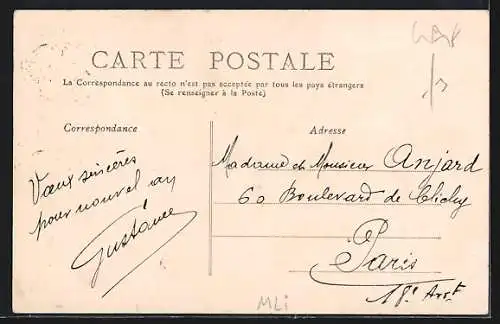 CARTE POSTALE
La Correspondance au recto n'est pas acceptée par tous les pays étrangers
(Se renseigner à la Poste)
Correspondance
Adresse
Vœux sincères
pour nouvel an
Gustave
Madame et Monsieur Anjard
60 Boulevard de Clichy
Paris
18e Arrt
MLi